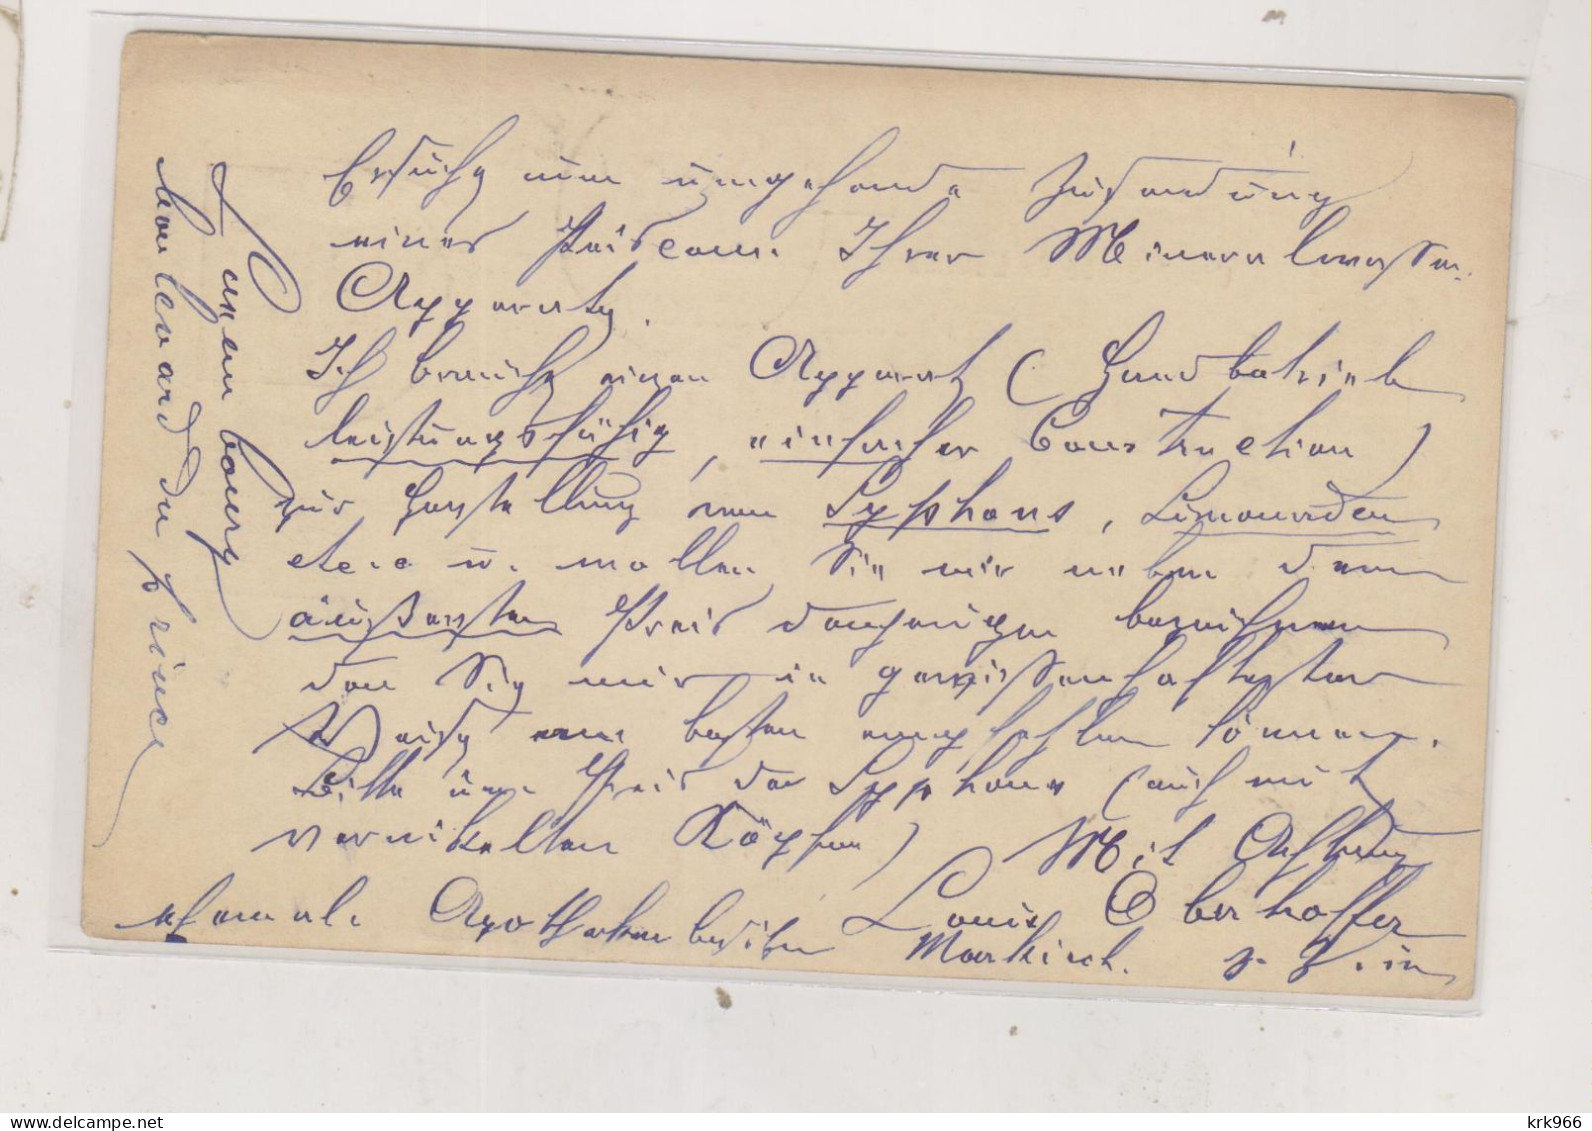 Ersuche um umgehende Zusendung
eines Preiscour. Ihrer Mineralwasser-
Apparate.
Ich brauche einen Apparat (Handbetrieb
leistungsfähig, einfacher Construction)
zur Herstellung von Syphons, Limonaden
etc. u. wollen Sie mir neben dem
äußersten Preis denjenigen bezeichnen
den Sie mir in gewissenhaftester
Weise am besten empfehlen können.
Bitte um Preis der Syphons (auch mit
vernickelten Köpfen) Mit Achtung
Louis Oberhoffer
ehemal. Apothekenbesitzer Markirch. z. Z. in
Luxembourg
boulevard du prince
krk966